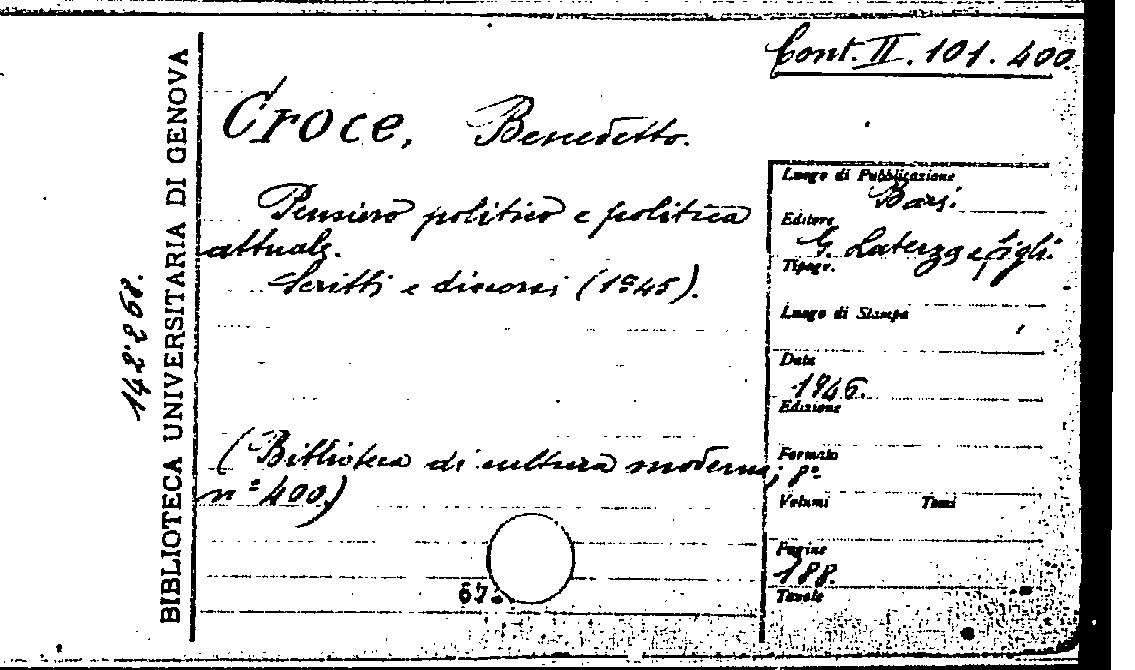 Cont. II. 101. 400.
Croce, Benedetto.
Pensiero politico e politica
attuale.
Scritti e discorsi (1945).
(Biblioteca di cultura moderna;
n° 400.)
BIBLIOTECA UNIVERSITARIA DI GENOVA
142268.
Luogo di Pubblicazione
Bari.
Editore
G. Laterza e figli.
Tipogr.
Luogo di Stampa
Data
1946.
Edizione
Formato
8°.
Volumi Tomi
Pagine
188.
Tavole